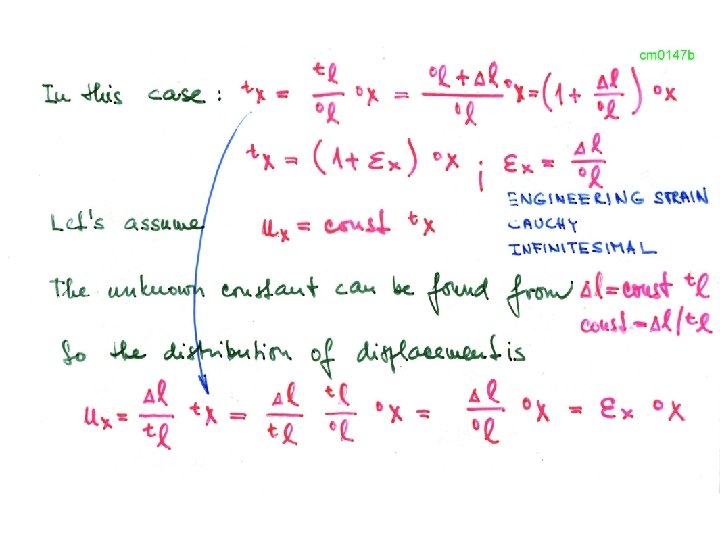 cm0147b
In this case : ᵗx = ᵗl/⁰l ⁰x = (⁰l + Δl)/⁰l ⁰x = (1 + Δl/⁰l) ⁰x
ᵗx = (1 + εx) ⁰x ; εx = Δl/⁰l
ENGINEERING STRAIN
CAUCHY
INFINITESIMAL
Let's assume uₓ = const ᵗx
The unknown constant can be found from Δl = const ᵗl
const = Δl/ᵗl
So the distribution of displacement is
uₓ = Δl/ᵗl ᵗx = Δl/ᵗl ᵗl/⁰l ⁰x = Δl/⁰l ⁰x = εx ⁰x